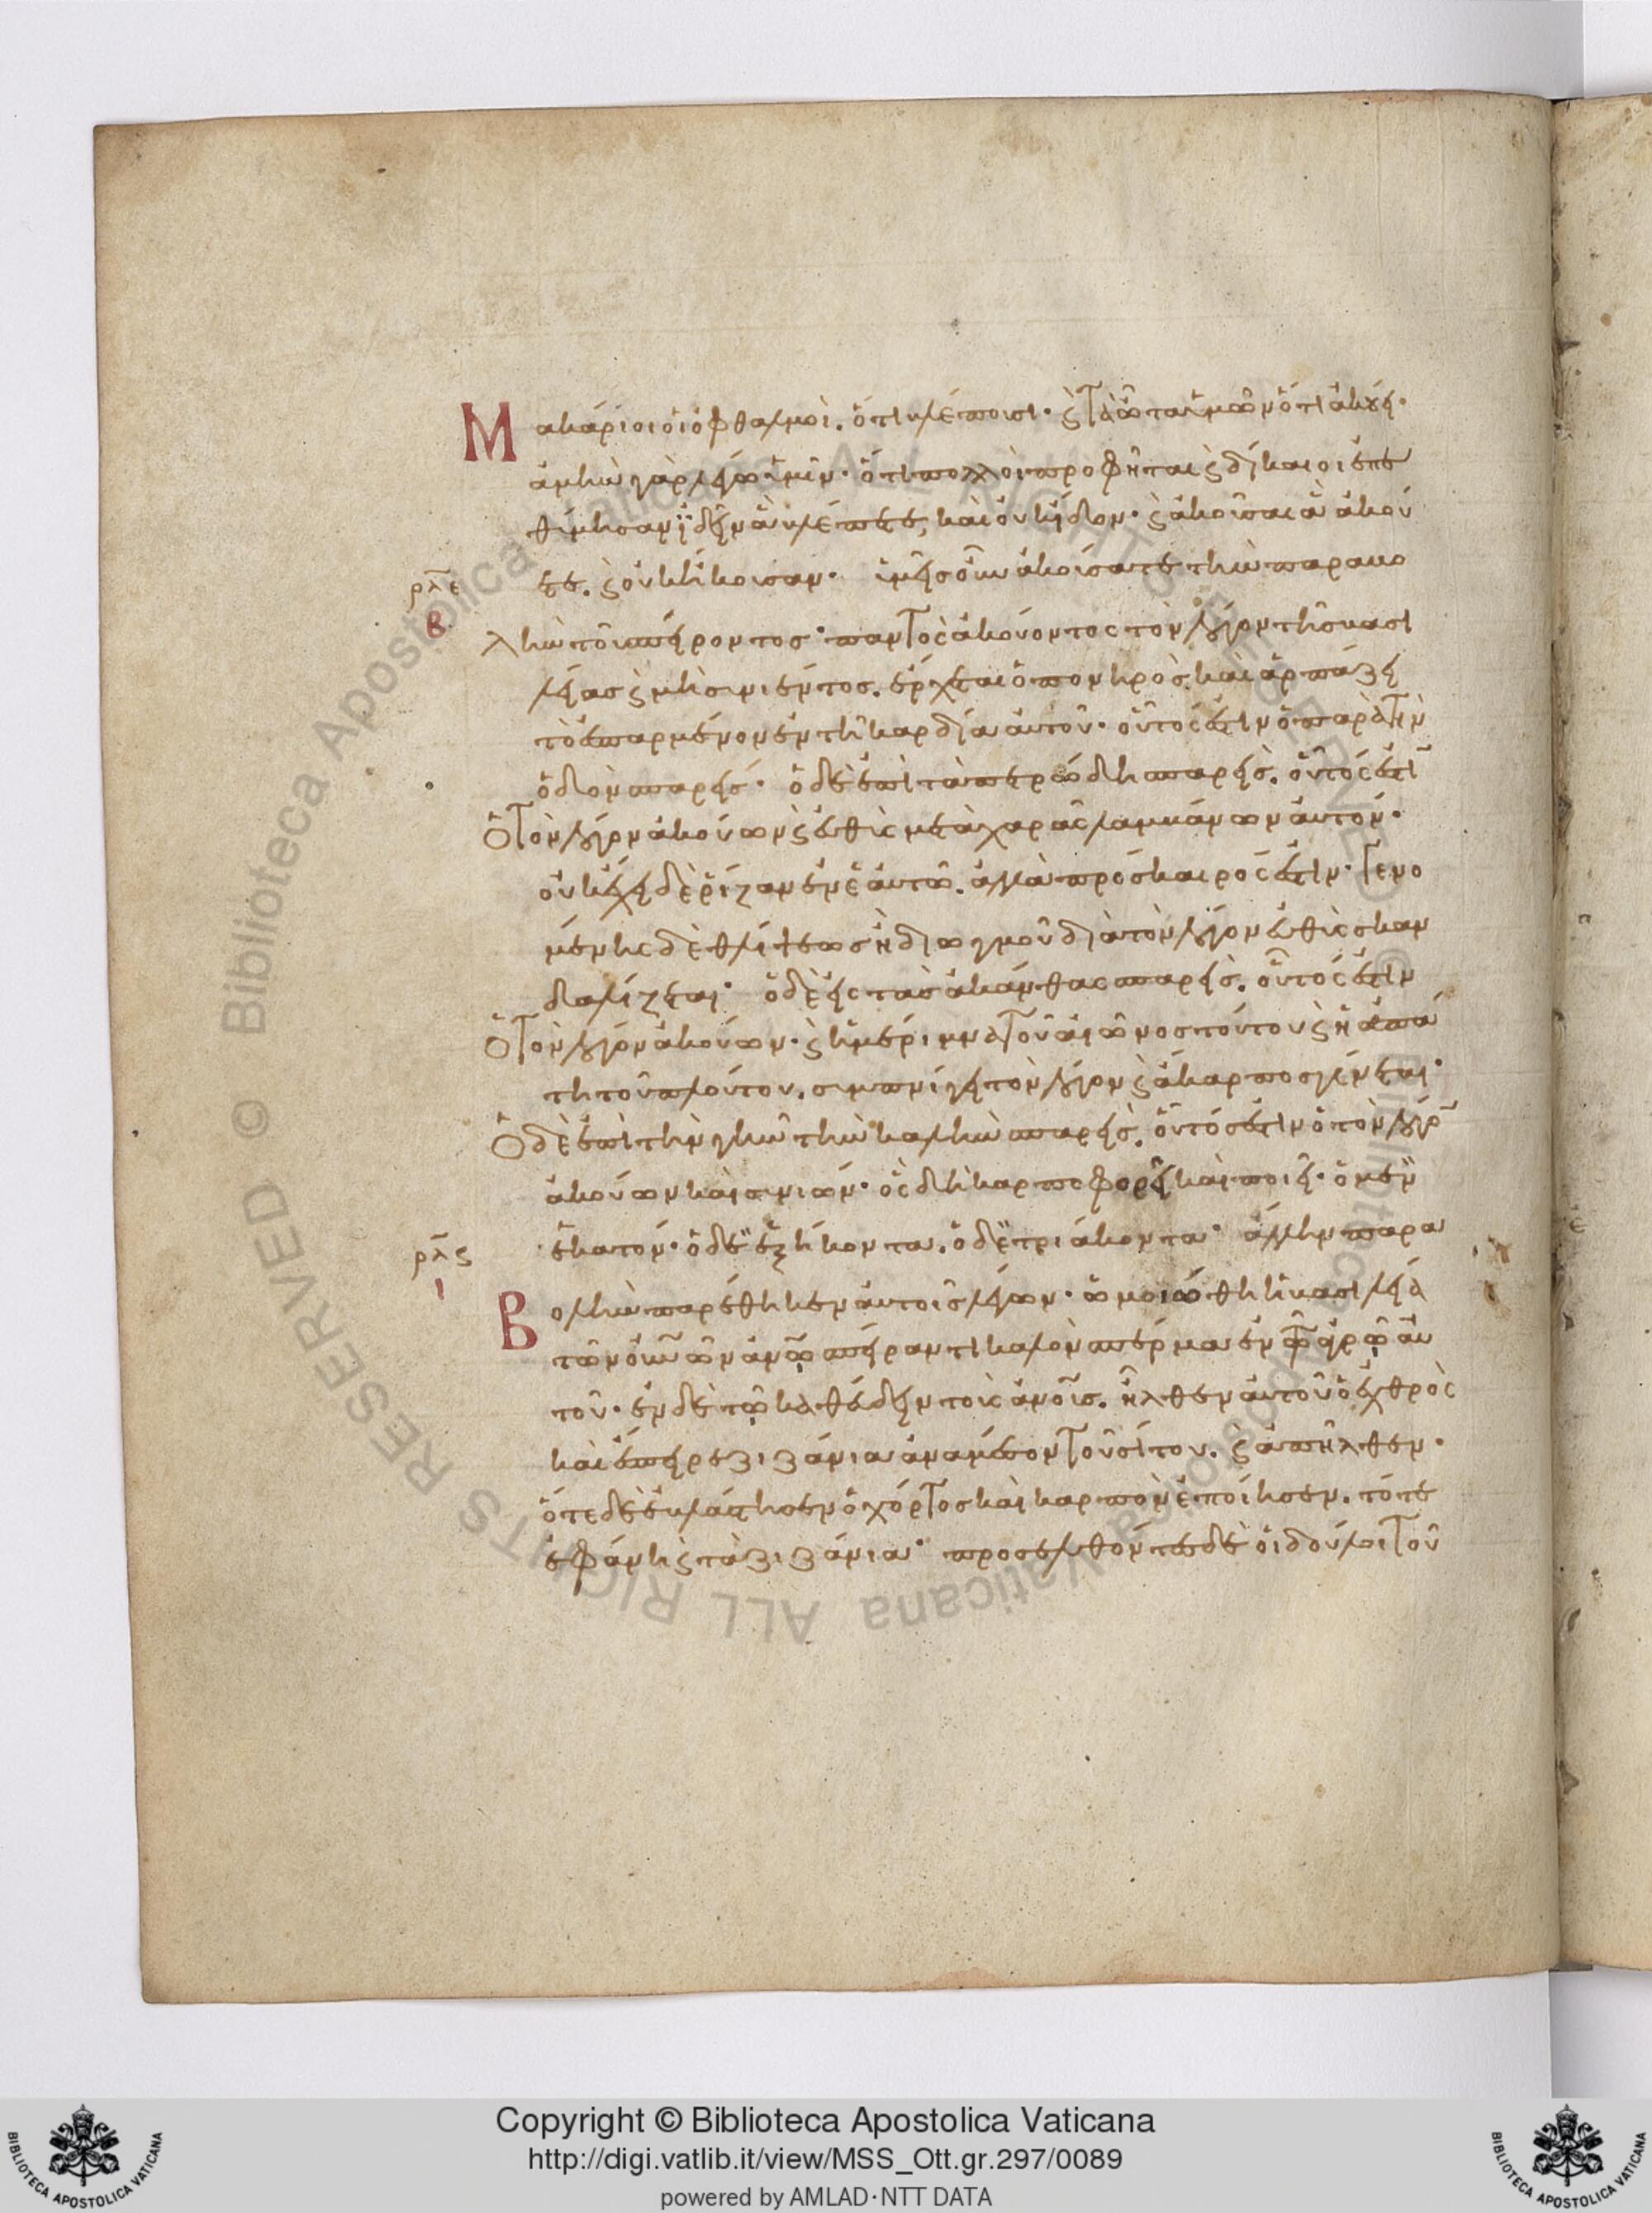 Μακάριοι οἱ ὀφθαλμοὶ. ὅτι βλέπουσι· ϛ τὰ ὦτα ὑμῶν ὅτι ἀκούει·
ἀμὴν γὰρ λέγω ὑμῖν· ὅτι πολλοὶ προφῆται ϛ δίκαιοι ἐπε
θύμησαν ἰδεῖν ἃ βλέπετε, καὶ οὐκ εἶδον· ϛ ἀκοῦσαι ἃ ἀκού
ετε. ϛ οὐκ ἤκουσαν· ὑμεῖς οὖν ἀκούσατε τὴν παραβο
ρλε
β
λὴν τοῦ σπείροντος· παντὸς ἀκούοντος τὸν λόγον τῆς βασι
λείας ϛ μὴ συνιέντος. ἔρχεται ὁ πονηρὸς καὶ ἁρπάζει
τὸ ἐσπαρμένον ἐν τῇ καρδία αὐτοῦ· οὗτός ἐστιν ὁ παρὰ τὴν
ὁδὸν σπαρείς· ὁ δὲ ἐπὶ τὰ πετρώδη σπαρεὶς. οὗτός ἐστὶ
ὁ τὸν λόγον ἀκούων ϛ εὐθὺς μετὰ χαρᾶς λαμβάνων αὐτόν·
οὐκ ἔχει δὲ ῥίζαν ἐν ἑαυτῶ. ἀλλὰ πρόσκαιρός ἐστιν· γενο
μένης δὲ θλίψεως ἢ διωγμοῦ διὰ τὸν λόγον εὐθὺς σκαν
δαλίζεται· ὁ δὲ εἰς τὰς ἀκάνθας σπαρεὶς. οὗτός ἐστιν
ὁ τὸν λόγον ἀκούων· ϛ ἡ μέριμνα τοῦ αἰῶνος τούτου ϛ ἡ ἀπά
τη τοῦ πλούτου. συμπνίγει τὸν λόγον ϛ ἄκαρπος γίνεται·
ὁ δὲ ἐπὶ τὴν γῆν τὴν καλὴν σπαρεὶς. οὗτός ἐστιν ὁ τὸν λόγο
ἀκούων καὶ συνιών· ὃς δὴ καρποφορεῖ καὶ ποιεῖ· ὁ μὲν
ἑκατόν· ὁ δὲ ἑξήκοντα. ὁ δὲ τριάκοντα· ἄλλην παρα
ρλϛ
ι
Βολὴν παρέθηκεν αὐτοῖς λέγων· ὡμοιώθη ἡ βασιλεία
τῶν οὐνῶν ἀνῳ σπείραντι καλὸν σπέρμα ἐν τῷ ἀγρῷ αὐ
τοῦ· ἐν δὲ τῷ καθεύδειν τοὺς ἀνους. ἦλθεν αὐτοῦ ὁ ἐχθρὸς
καὶ ἔσπειρε ζιζάνια ἀνάμεσον τοῦ σίτου. ϛ ἀπῆλθεν·
ὅτε δὲ ἐβλάστησεν ὁ χόρτος καὶ καρπὸν ἐποίησεν. τότε
ἐφάνη ϛ τὰ ζιζάνια· προσελθόντες δὲ οἱ δοῦλοι τοῦ
Copyright © Biblioteca Apostolica Vaticana
http://digi.vatlib.it/view/MSS_Ott.gr.297/0089
powered by AMLAD·NTT DATA